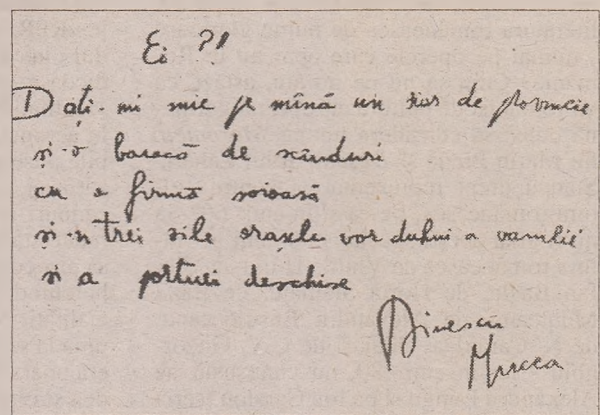 Ei ?!
Dați-mi mie pe mînă un ziar de provincie
și-o baracă de scînduri
cu o firmă soioasă
și-n trei zile orașele vor duhni a vanilie
și a porturi deschise
Dinescu
Mircea